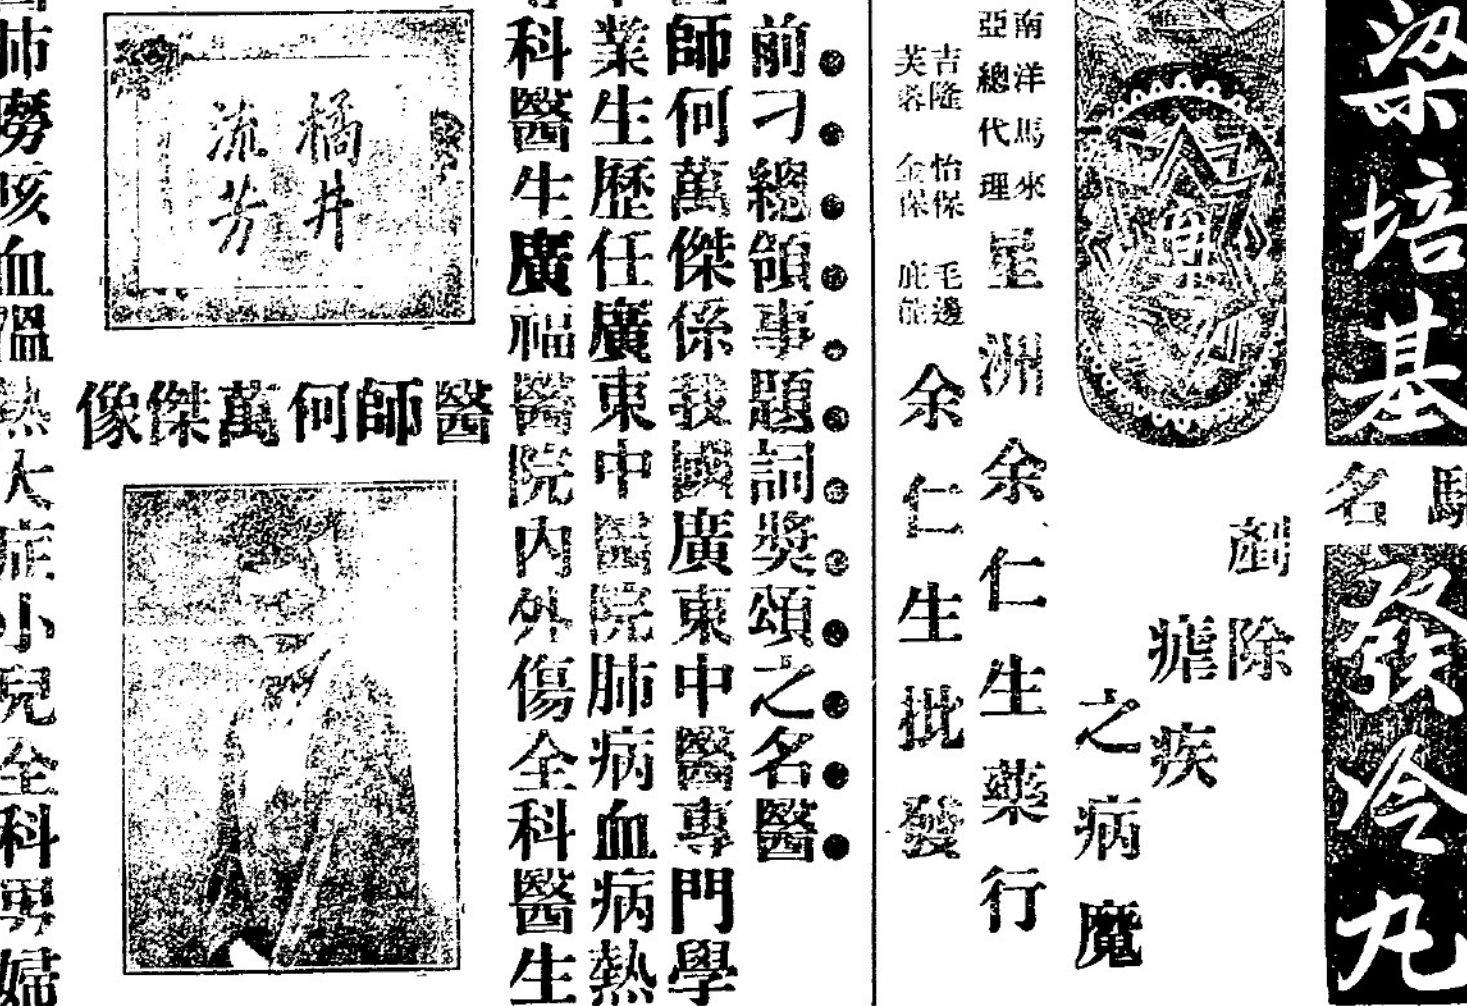 梁培基
馳名
發冷丸
剷除
瘧疾
之病魔
南洋馬來
亞總代理
星洲余仁生藥行
吉隆 怡保 毛邊
芙蓉 金保 庇能
余仁生批發
前刁總領事題詞獎頌之名醫
師何萬傑係我國廣東中醫專門學
業生歷任廣東中醫院肺病血病熱
科醫生廣福醫院內外傷全科醫生
橘井
流芳
醫師何萬傑像
肺癆咳血溫熱大症小兒全科男婦